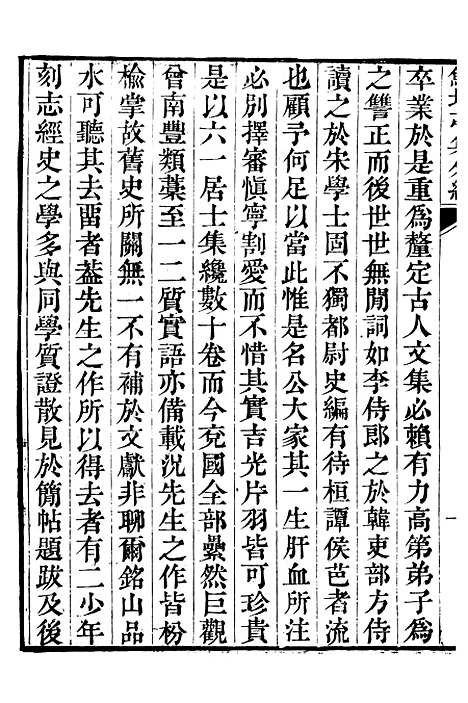 鮚埼亭集外編
卒業於是重爲釐定古人文集必賴有力高第弟子爲
之讐正而後世世無閒詞如李侍郎之於韓吏部方侍
讀之於宋學士固不獨都尉史編有待桓譚侯芭者流
也顧予何足以當此惟是名公大家其一生肝血所注
必別擇審愼寧割愛而不惜其實吉光片羽皆可珍貴
是以六一居士集纔數十卷而今兗國全部纍然巨觀
曾南豐類藁至一二質實語亦備載況先生之作皆枌
檢掌故舊史所關無一不有補於文獻非聊爾銘山品
水可聽其去畱者葢先生之作所以得去者有二少年
刻志經史之學多與同學質證散見於簡帖題跋及後